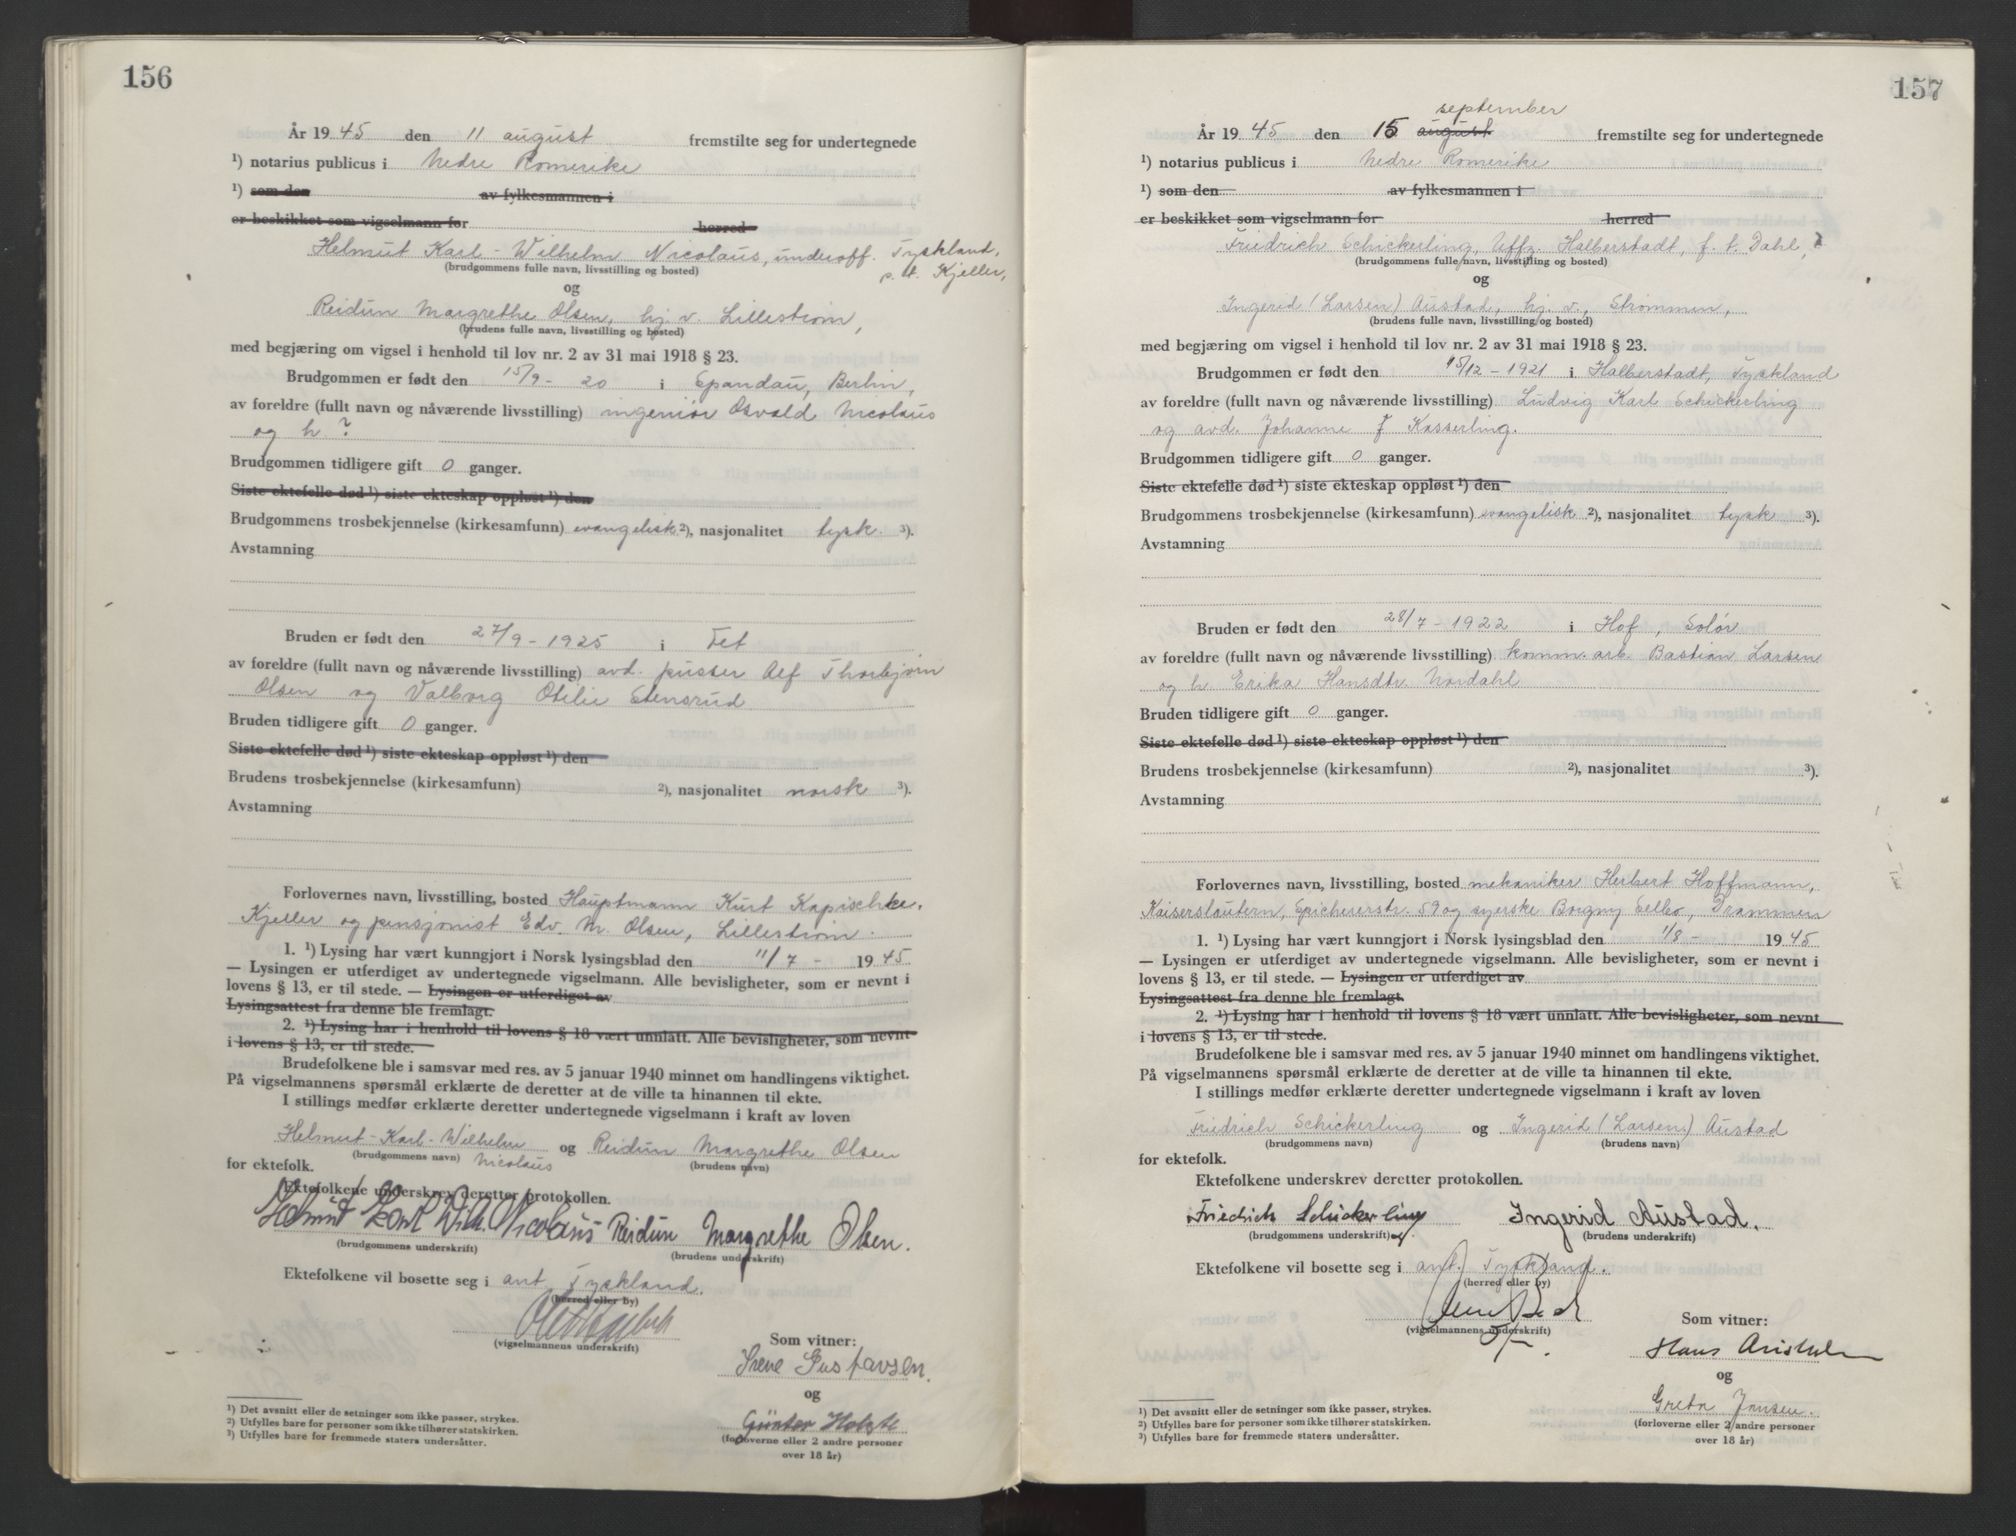 156
År 1945 den 11 august fremstilte seg for undertegnede
¹) notarius publicus i Nedre Romerike
¹) som den av fylkesmannen i
er beskikket som vigselmann for herred
Helmut Karl-Wilhelm Nicolaus, underoff. Tyskland,
(brudgommens fulle navn, livsstilling og bosted) p.t. Kjeller,
og
Reidun Margrethe Olsen, hj. v. Lillestrøm,
(brudens fulle navn, livsstilling og bosted)
med begjæring om vigsel i henhold til lov nr. 2 av 31 mai 1918 § 23.
Brudgommen er født den 15/9 - 20 i Spandau, Berlin,
av foreldre (fullt navn og nåværende livsstilling) ingeniør Osvald Nicolaus
og h ?
Brudgommen tidligere gift 0 ganger.
Siste ektefelle død ¹) siste ekteskap oppløst ¹) den
Brudgommens trosbekjennelse (kirkesamfunn) evangelisk ²), nasjonalitet tysk ³).
Avstamning
Bruden er født den 27/9 - 1925 i Fet
av foreldre (fullt navn og nåværende livsstilling) avd. pusser Alf Thorbjørn
Olsen og Valborg Otilie Stensrud
Bruden tidligere gift 0 ganger.
Siste ektefelle død ¹) siste ekteskap oppløst ¹) den
Brudens trosbekjennelse (kirkesamfunn) ²), nasjonalitet norsk ³).
Avstamning
Forlovernes navn, livsstilling, bosted Hauptmann Kurt Kapischke,
Kjeller og pensjonist Edv. M. Olsen, Lillestrøm.
1. ¹) Lysing har vært kunngjort i Norsk lysingsblad den 11/7 - 1945.
— Lysingen er utferdiget av undertegnede vigselmann. Alle bevisligheter, som er nevnt i
lovens § 13, er til stede. — Lysingen er utferdiget av
Lysingsattest fra denne ble fremlagt.
2. ¹) Lysing har i henhold til lovens § 18 vært unnlatt. Alle bevisligheter, som nevnt
i lovens § 13, er til stede.
Brudefolkene ble i samsvar med res. av 5 januar 1940 minnet om handlingens viktighet.
På vigselmannens spørsmål erklærte de deretter at de ville ta hinannen til ekte.
I stillings medfør erklærte deretter undertegnede vigselmann i kraft av loven
Helmut-Karl-Wilhelm og Reidun Margrethe Olsen
(brudgommens navn) Nicolaus (brudens navn)
for ektefolk.
Ektefolkene underskrev deretter protokollen.
Helmut Karl Wilh. Nicolaus Reidun Margrethe Olsen.
(brudgommens underskrift) (brudens underskrift)
Ektefolkene vil bosette seg i ant. Tyskland.
(herred eller by)
(vigselmannens underskrift)
Som vitner:
Irene Gustavsen.
og
Günter
(forloverne eller 2 andre personer
over 18 år)
¹) Det avsnitt eller de setninger som ikke passer, strykes.
²) Utfylles bare for personer som ikke tilhører statskirken.
³) Utfylles bare for fremmede staters undersåtter.
157
september
År 1945 den 15 august fremstilte seg for undertegnede
¹) notarius publicus i Nedre Romerike
¹) som den av fylkesmannen i
er beskikket som vigselmann for herred
Friedrich Schickerling, Uffz. Halberstadt, f. t. Dahl,
(brudgommens fulle navn, livsstilling og bosted)
og
Ingerid (Larsen) Austad, hj. v., Strømmen,
(brudens fulle navn, livsstilling og bosted)
med begjæring om vigsel i henhold til lov nr. 2 av 31 mai 1918 § 23.
Brudgommen er født den 15/12 - 1921 i Halberstadt, Tyskland
av foreldre (fullt navn og nåværende livsstilling) Ludvig Karl Schickerling
og avd. Johanne f Kasserling.
Brudgommen tidligere gift 0 ganger.
Siste ektefelle død ¹) siste ekteskap oppløst ¹) den
Brudgommens trosbekjennelse (kirkesamfunn) evangelisk ²), nasjonalitet tysk ³).
Avstamning
Bruden er født den 28/7 - 1922 i Hof, Solør
av foreldre (fullt navn og nåværende livsstilling) komm. arb. Bastian Larsen
og h. Erika Hansdtr. Nordahl
Bruden tidligere gift 0 ganger.
Siste ektefelle død ¹) siste ekteskap oppløst ¹) den
Brudens trosbekjennelse (kirkesamfunn) ²), nasjonalitet ³).
Avstamning
Forlovernes navn, livsstilling, bosted mekaniker Herbert Hoffmann,
Kaiserslautern, Epichererstr. 59 og syerske Borgny Selbo, Drammen
1. ¹) Lysing har vært kunngjort i Norsk lysingsblad den 1/8 - 1945
— Lysingen er utferdiget av undertegnede vigselmann. Alle bevisligheter, som er nevnt i
lovens § 13, er til stede. — Lysingen er utferdiget av
Lysingsattest fra denne ble fremlagt.
2. ¹) Lysing har i henhold til lovens § 18 vært unnlatt. Alle bevisligheter, som nevnt
i lovens § 13, er til stede.
Brudefolkene ble i samsvar med res. av 5 januar 1940 minnet om handlingens viktighet.
På vigselmannens spørsmål erklærte de deretter at de ville ta hinannen til ekte.
I stillings medfør erklærte deretter undertegnede vigselmann i kraft av loven
Friedrich Schickerling og Ingerid (Larsen) Austad
(brudgommens navn) (brudens navn)
for ektefolk.
Ektefolkene underskrev deretter protokollen.
Friedrich Schickerling Ingerid Austad.
(brudgommens underskrift) (brudens underskrift)
Ektefolkene vil bosette seg i ant. Tyskland.
(herred eller by)
(vigselmannens underskrift)
Som vitner:
Hans
og
Greta Jensen.
(forloverne eller 2 andre personer
over 18 år)
¹) Det avsnitt eller de setninger som ikke passer, strykes.
²) Utfylles bare for personer som ikke tilhører statskirken.
³) Utfylles bare for fremmede staters undersåtter.